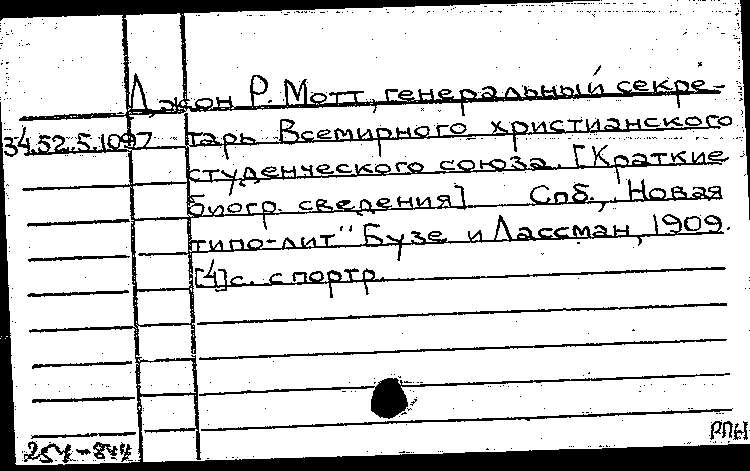 Джон Р. Мотт, генеральный секре-
34.52.5.1097 тарь Всемирного христианского
студенческого союза. [Краткие
биогр. сведения] Спб., Новая
типо-лит" Бузе и Лассман, 1909.
[4]с. с портр.
254-844
РПБ